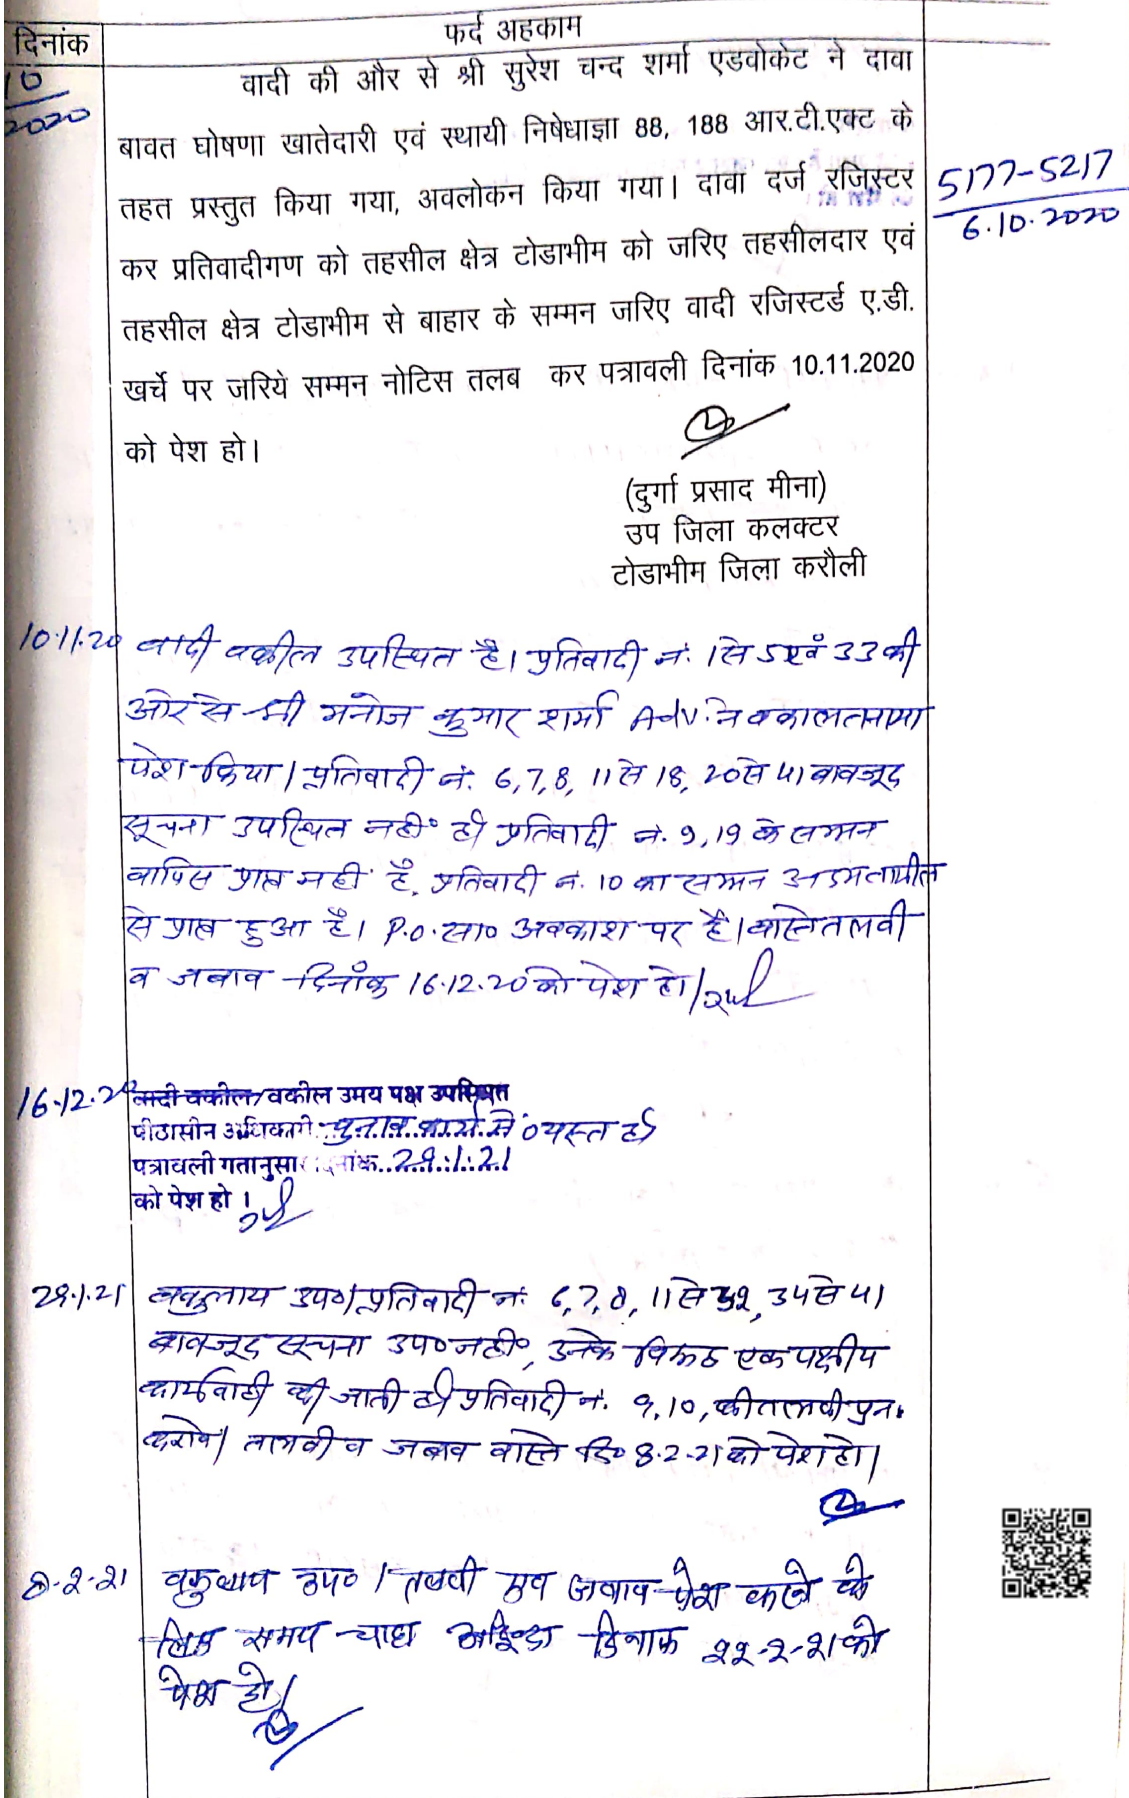 दिनांक
फर्द अहकाम
10
2020
वादी की और से श्री सुरेश चन्द शर्मा एडवोकेट ने दावा
बावत घोषणा खातेदारी एवं स्थायी निषेधाज्ञा 88, 188 आर.टी.एक्ट के
तहत प्रस्तुत किया गया, अवलोकन किया गया। दावा दर्ज रजिस्टर
कर प्रतिवादीगण को तहसील क्षेत्र टोडाभीम को जरिए तहसीलदार एवं
तहसील क्षेत्र टोडाभीम से बाहार के सम्मन जरिए वादी रजिस्टर्ड ए.डी.
खर्चे पर जरिये सम्मन नोटिस तलब कर पत्रावली दिनांक 10.11.2020
को पेश हो।
5177-5217
6.10.2020
(दुर्गा प्रसाद मीना)
उप जिला कलक्टर
टोडाभीम जिला करौली
10.11.20 वादी वकील उपस्थित है। प्रतिवादी नं. 1 से 5 एवं 33 की
ओर से श्री मनोज कुमार शर्मा Adv. ने वकालतनामा
पेश किया। प्रतिवादी नं. 6,7,8, 11 से 18, 20 से 41 बावजूद
सूचना उपस्थित नहीं है। प्रतिवादी नं. 9,19 के सम्मन
वापिस प्राप्त नहीं है, प्रतिवादी नं. 10 का सम्मन अदमतामील
से प्राप्त हुआ है। P.O. सा० अवकाश पर है। वास्ते तलवी
व जबाव दिनाँक 16.12.20 को पेश हो।
16.12.20 वादी वकील/वकील उभय पक्ष उपस्थित
पीठासीन अधिकारी चुनाव कार्य में व्यस्त है।
पत्रावली गतानुसार दिनांक 29.1.21
को पेश हो।
29.1.21 वकुलाय उप०। प्रतिवादी नं. 6,7,8, 11 से 32, 34 से 41
बावजूद सूचना उप० नही०, उनके विरूद्ध एक पक्षीय
कार्यवाही की जाती है। प्रतिवादी नं. 9,10, की तलवी पुनः
करावे। तलवी व जबाव वास्ते दि० 8.2.21 को पेश हो।
8-2-21 वकुलाय उप०। तलवी एव जवाव पेश करने के
लिए समय चाहा दिनांक 22-2-21 को
पेश हो।